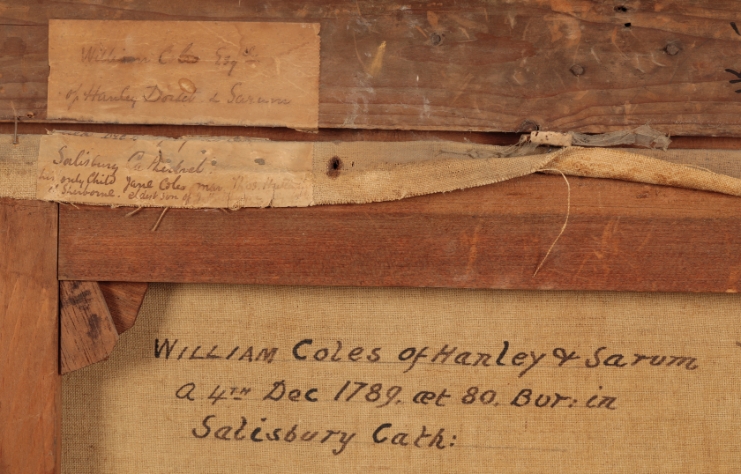 William C Esqre
of Hanley Dorset & Sarum
Salisbury Cathedral.
his only Child Jane Coles mar
Sherborne. eldest son of
WILLIAM Coles of Hanley & Sarum
a 4TH Dec 1789. æt 80. Bur: in
Salisbury Cath: